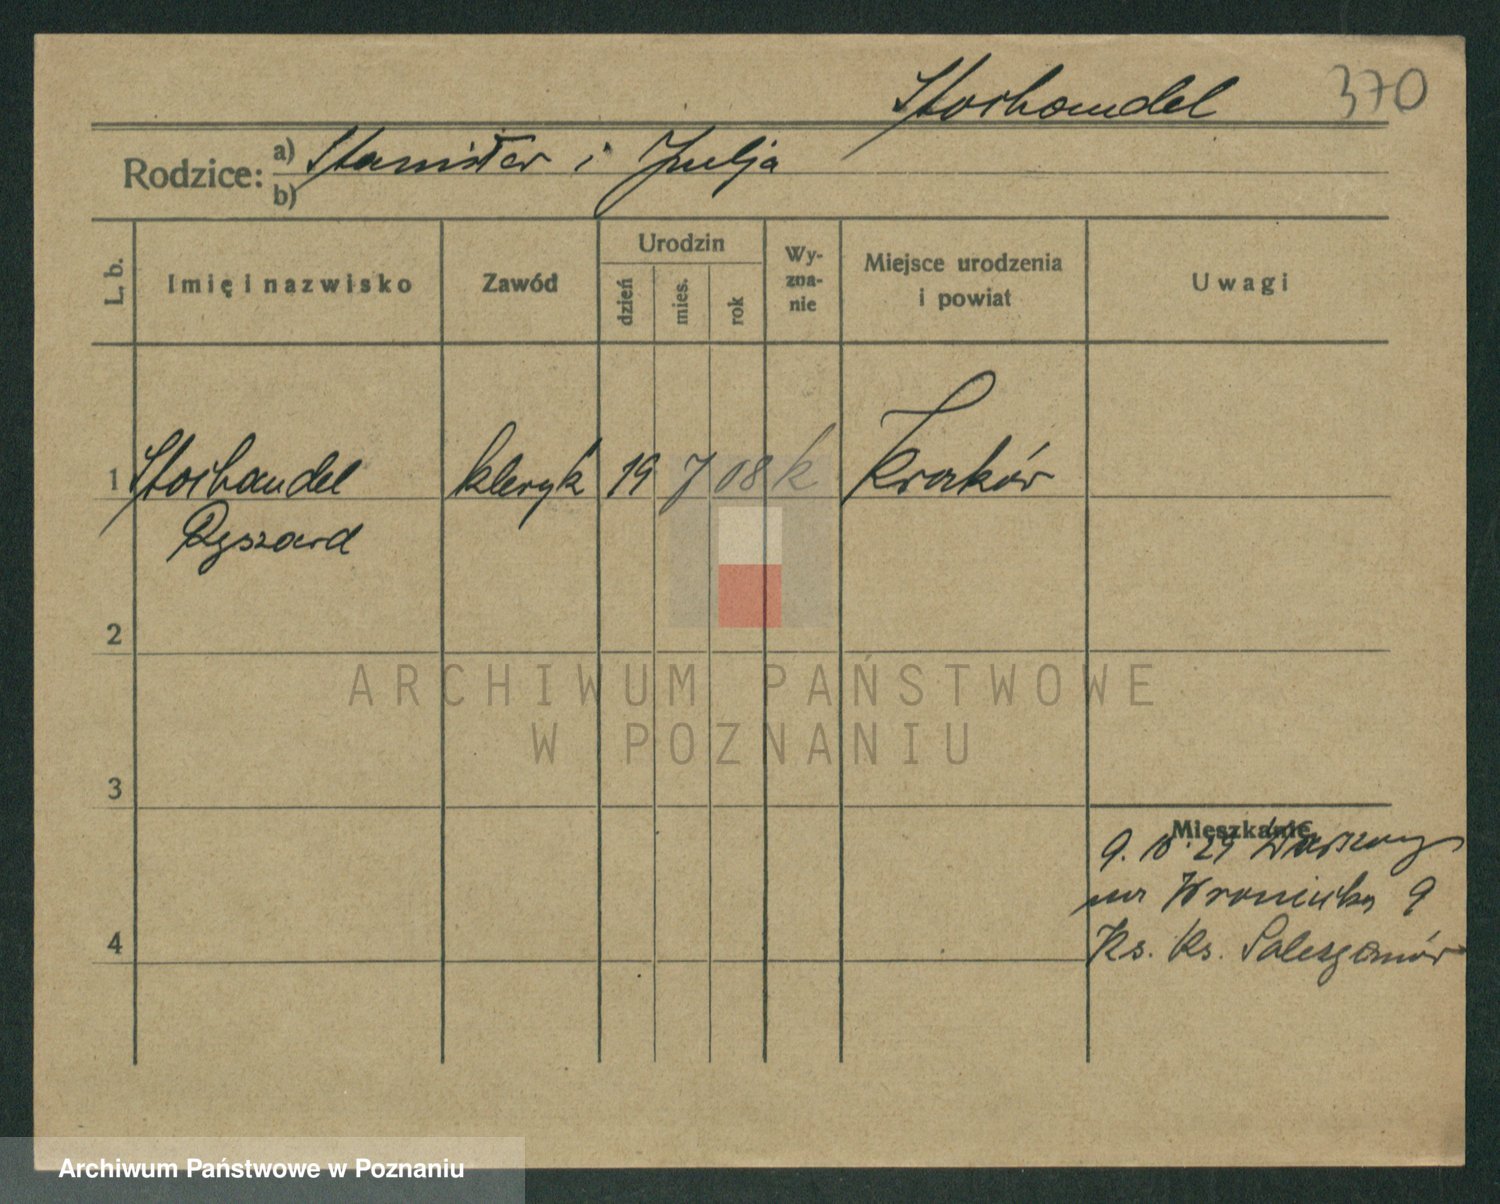 Stochandel 370
Rodzice: a) Stanisław i Julja
b)
L. b. Imię i nazwisko Zawód Urodzin dzień mies. rok Wyznanie Miejsce urodzenia i powiat Uwagi
1 Stochandel kleryk 19 7 08 k Kraków
Ryszard
2
ARCHIWUM PAŃSTWOWE
W POZNANIU
3
Mieszkanie
9. 10. 29
Wroniecka 9
4 Ks. Ks. Salezjanów
Archiwum Państwowe w Poznaniu